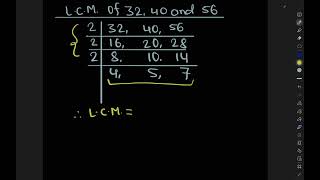 L.C.M. of 32, 40 and 56
2 32, 40, 56
2 16, 20, 28
2 8. 10. 14
4, 5, 7
∴ L.C.M. =